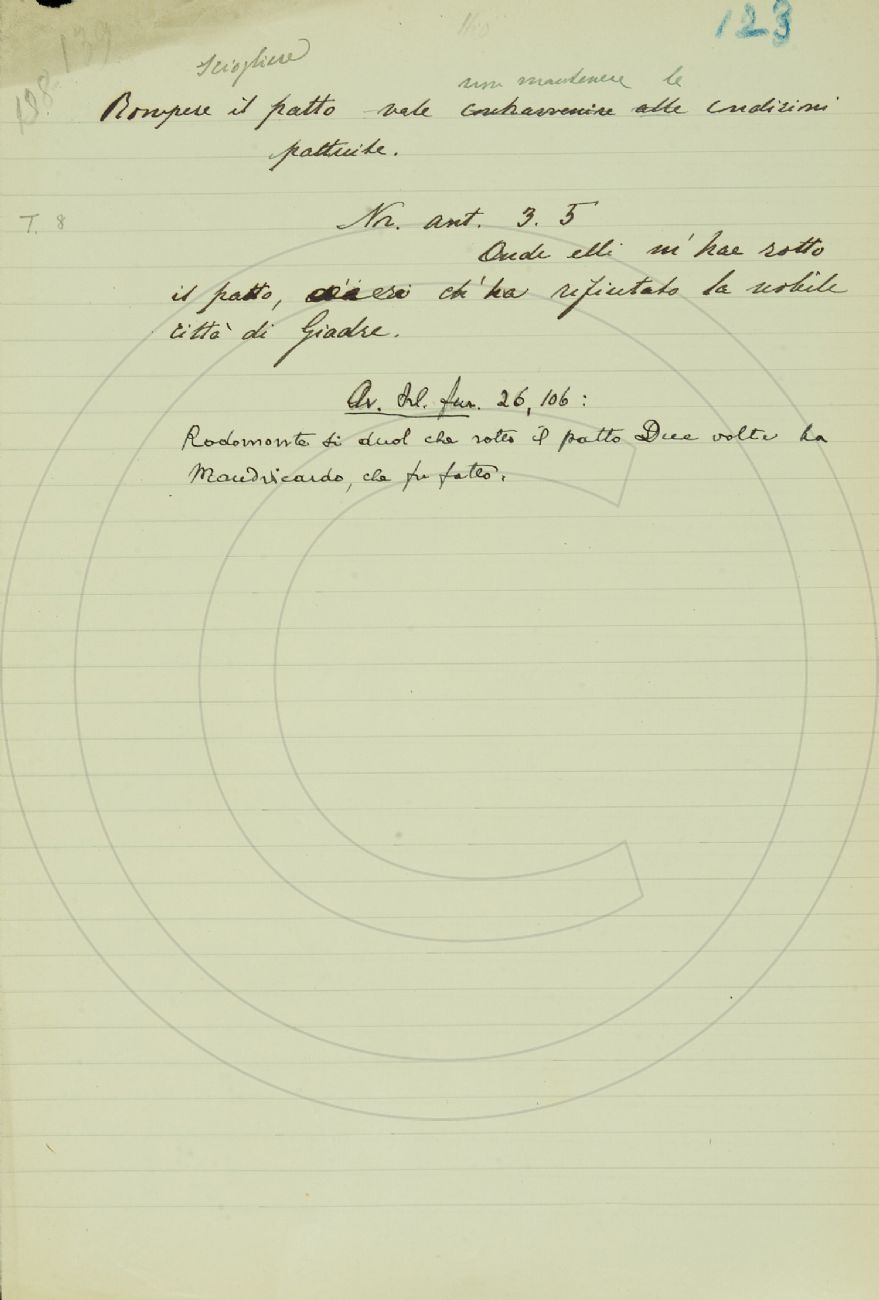 123
139
138
Sciogliere
non mantenere le
Rompere il patto vale contravvenire alle condizioni
pattuite.
T. 8
Nov. ant. 3. 5
Onde elli m'hae rotto
il patto, ch'ha rifiutato la nobile
città di Giadre.
Ar. Orl. fur. 26, 106:
Rodomonte si duol che rotto il patto Due volte ha
Mandricardo, che fu fatto.